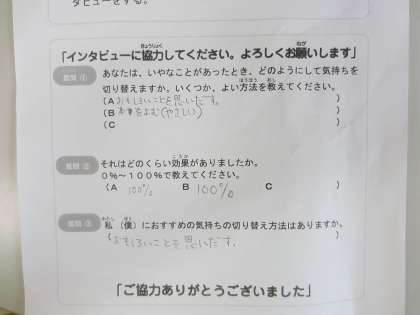 タビューをする。
「インタビューに協力してください。よろしくお願いします」
質問 ① あなたは、いやなことがあったとき、どのようにして気持ちを
切り替えますか。いくつか、よい方法を教えてください。
(A おもしろいことを思いだす。 )
(B 本をよむ(やさしい) )
(C )
質問 ② それはどのくらい効果がありましたか。
0%～100%で教えてください。
(A 100% B 100% C )
質問 ③ 私(僕)におすすめの気持ちの切り替え方法はありますか。
(おもしろいことを思いだす。 )
「ご協力ありがとうございました」